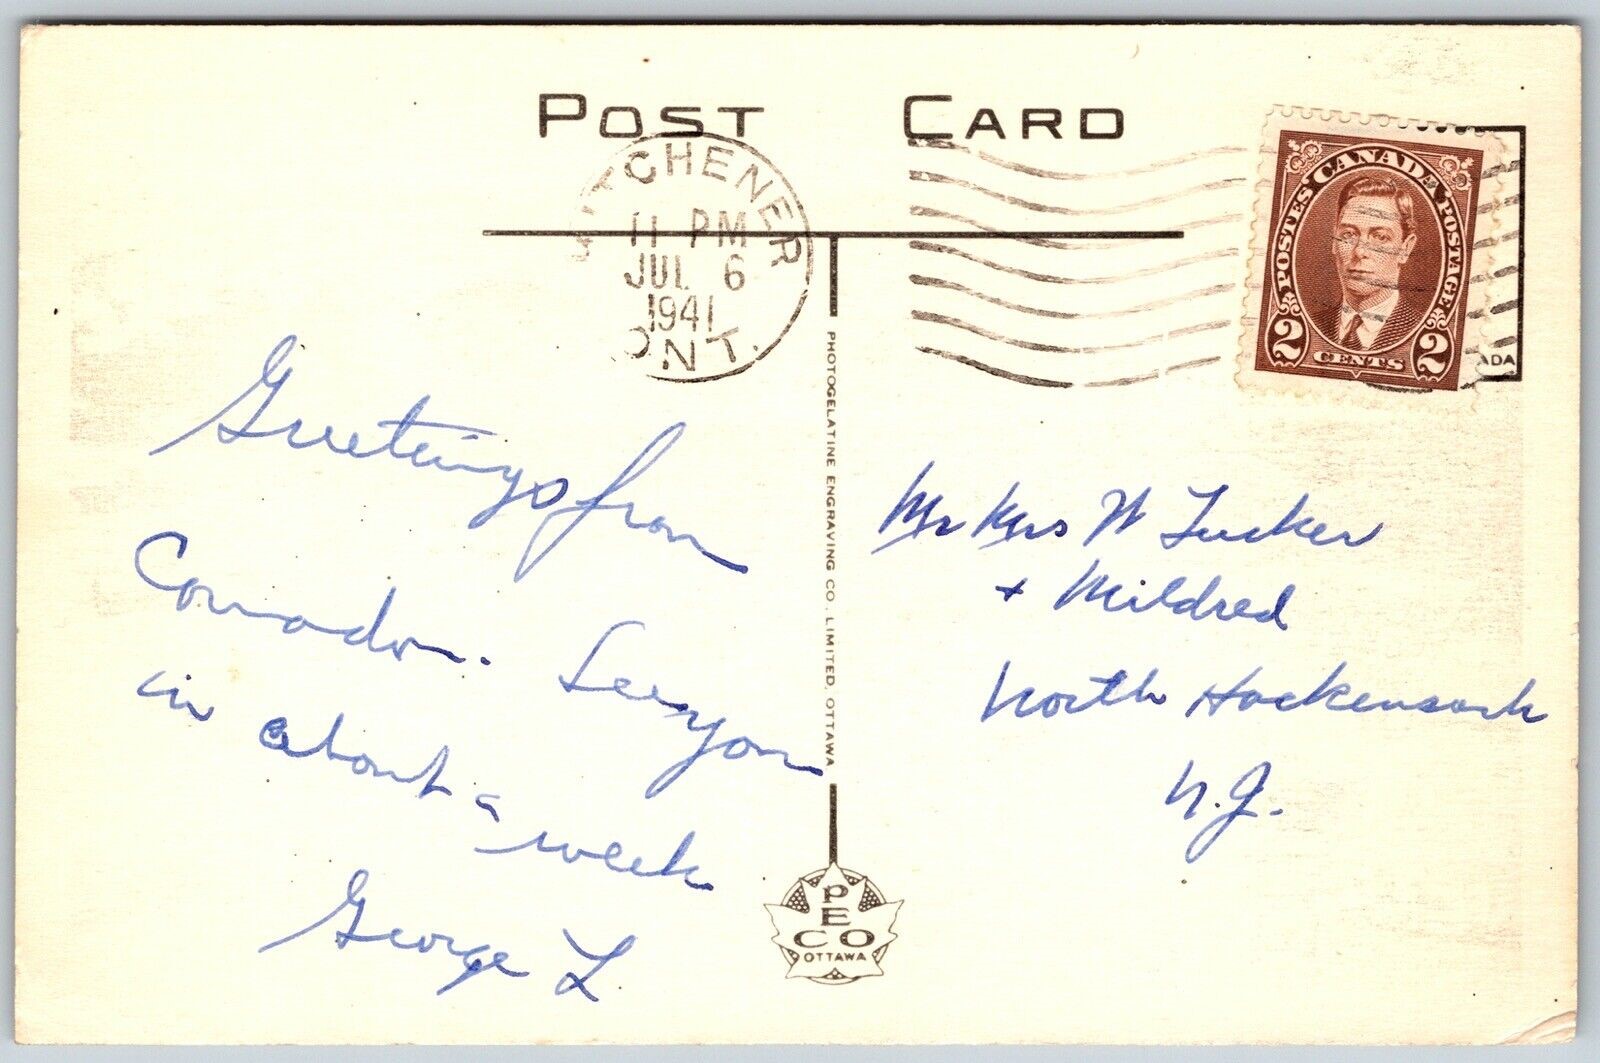 POST CARD
KITCHENER
11 PM
JUL 6
1941
ONT.
POSTES CANADA POSTAGE
2 CENTS 2
ADA
Greetings from
Canada. See you
in about a week
George L
PHOTOGELATINE ENGRAVING CO. LIMITED, OTTAWA
Mr & Mrs W Tucker
+ Mildred
North Hackensack
N.J.
PECO
OTTAWA